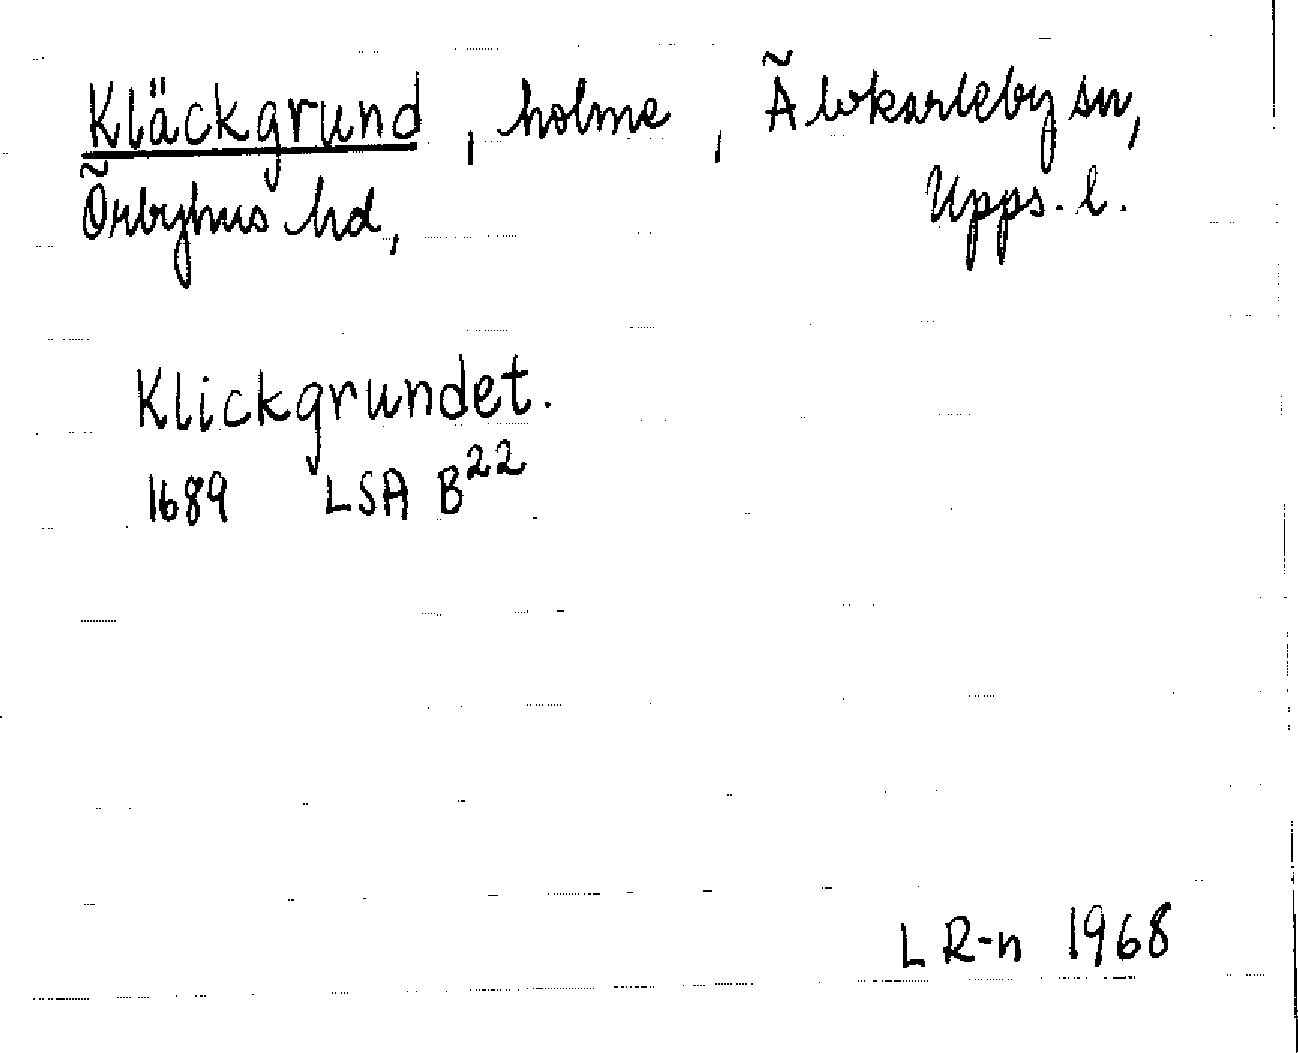 Kläckgrund, holme, Älvkarleby sn,
Örbyhus hd, Upps. l.
Klickgrundet.
1689 LSA B²²
L R-n 1968